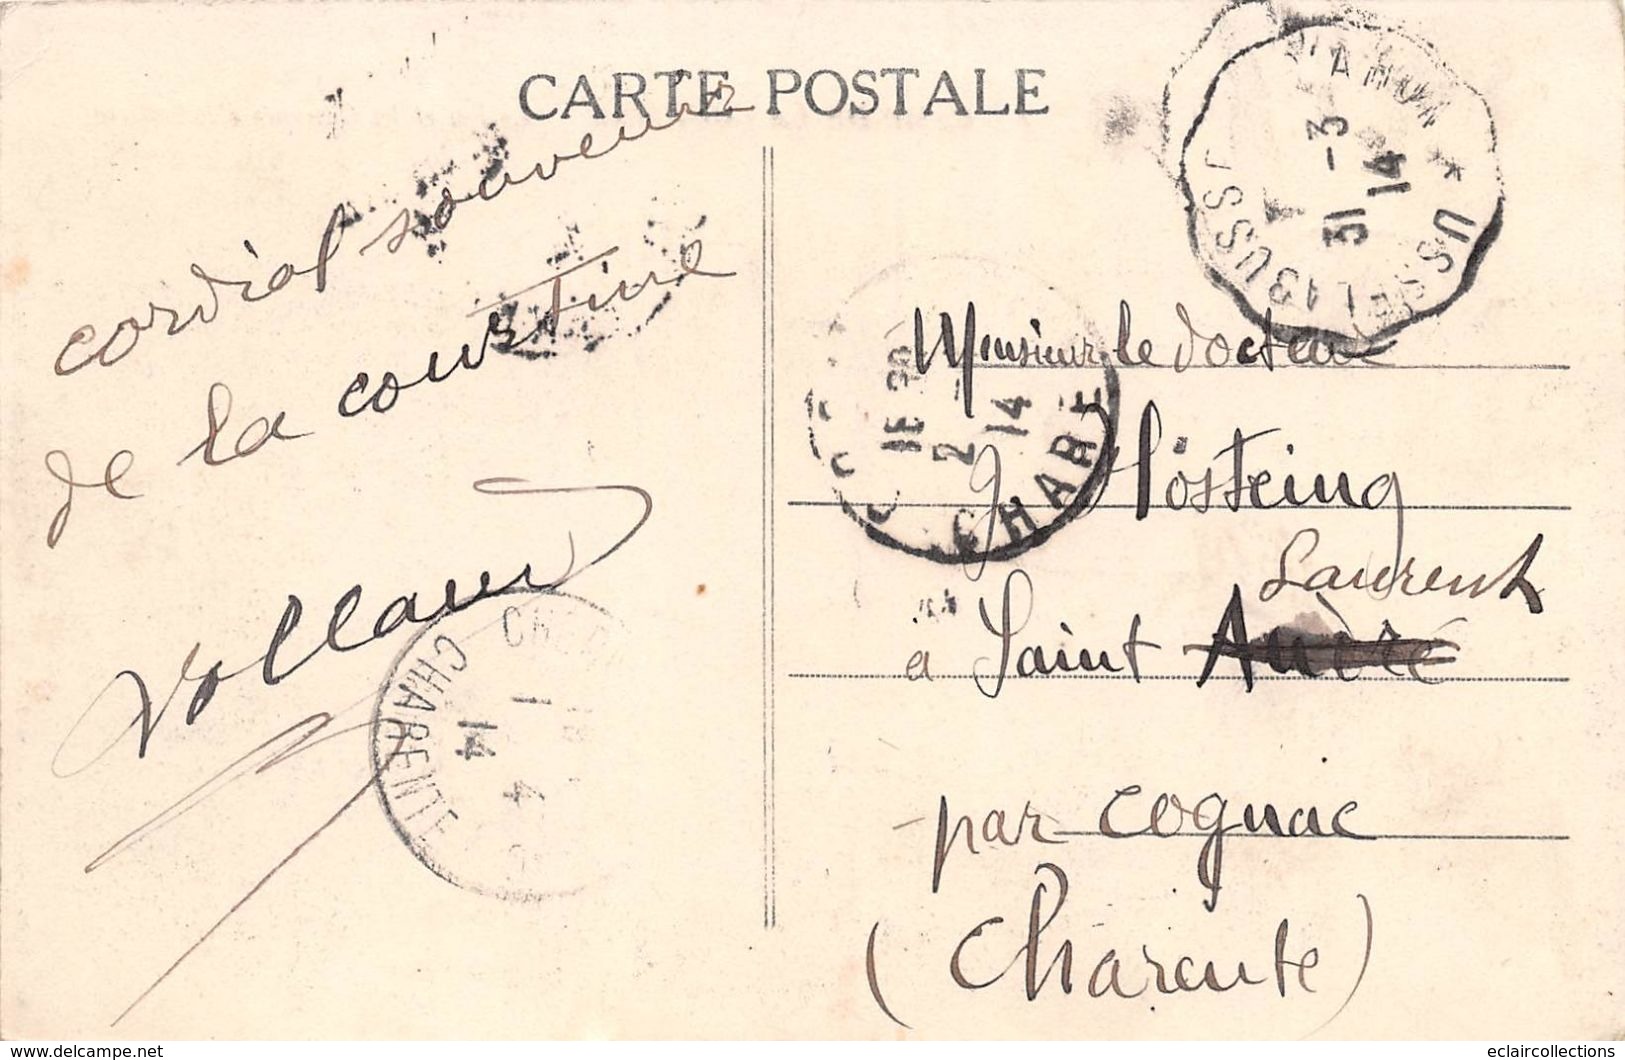 CARTE POSTALE
cordial souvenir
de la courtine
Vollaud
Monsieur le docteur
J Hosteing
Laurent
a Saint André
par Cognac
(Charente)
31 -3
14
USSEL
16 30
2
14
CHARE
CHARENTE
1 4
14
eclaircollections